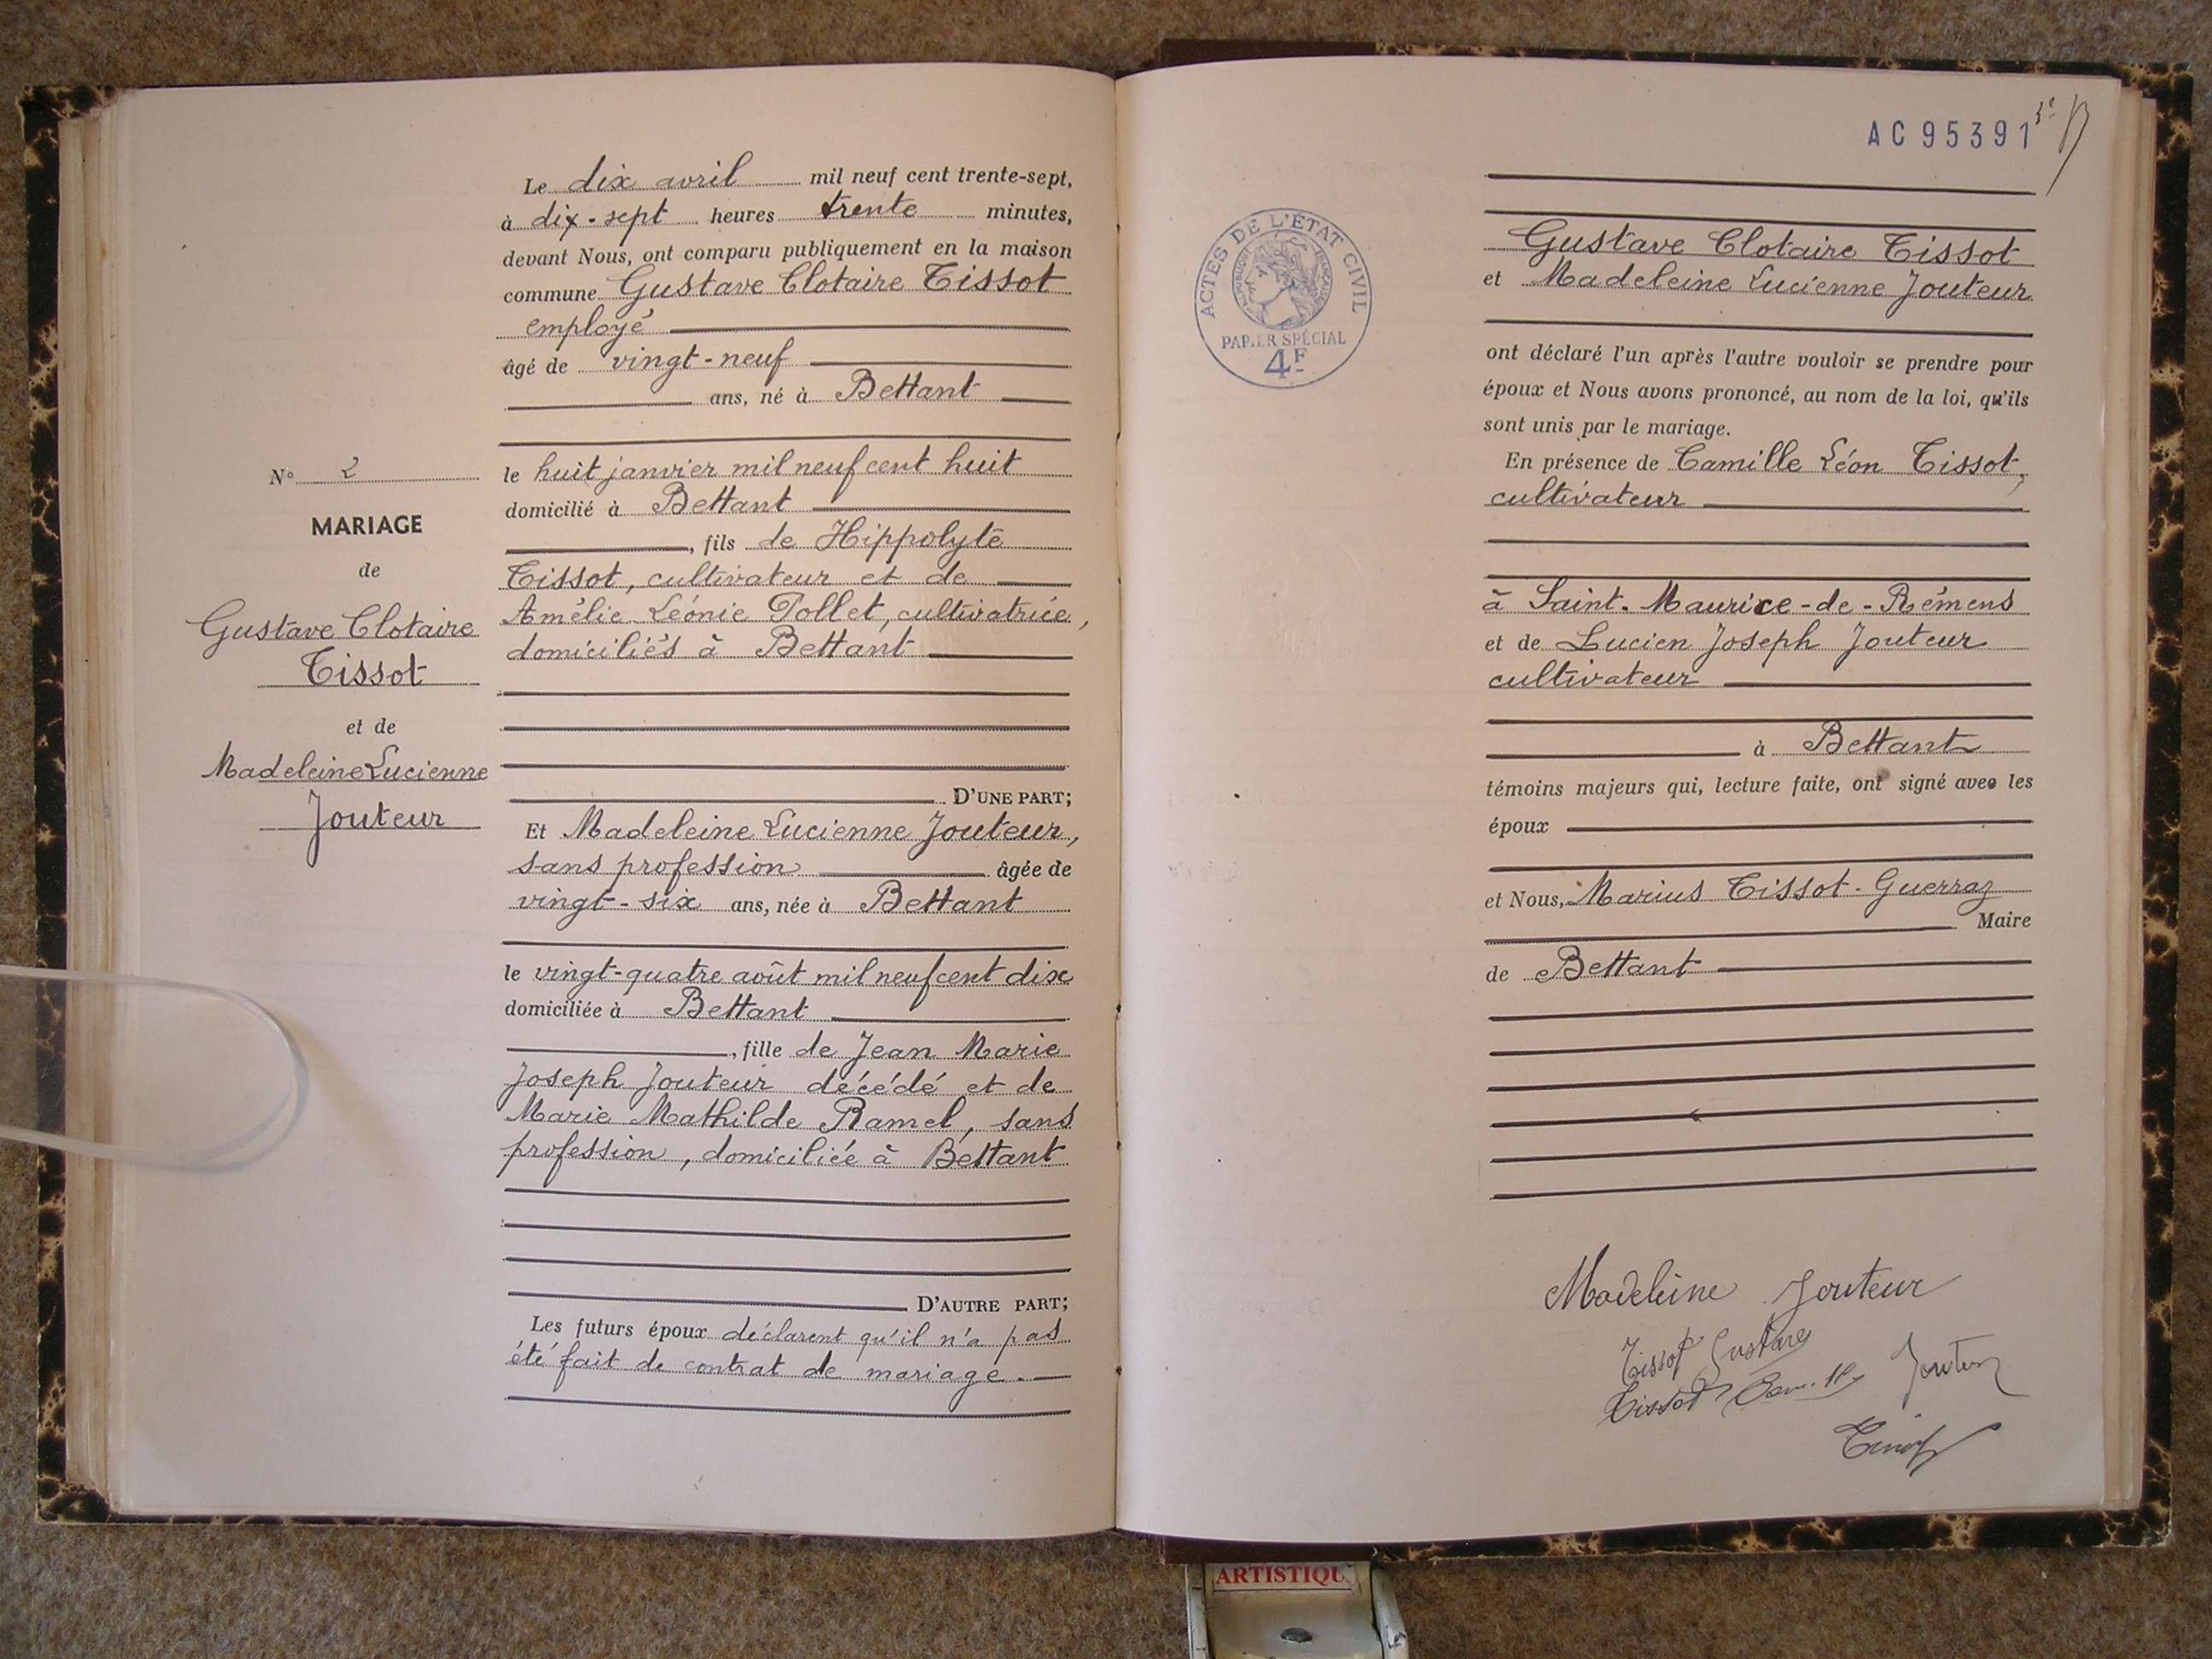 Le dix avril mil neuf cent trente-sept,
à dix-sept heures trente minutes,
devant Nous, ont comparu publiquement en la maison
commune Gustave Clotaire Tissot
employé
âgé de vingt-neuf
ans, né à Bettant
le huit janvier mil neuf cent huit
domicilié à Bettant
, fils de Hippolyte
Tissot, cultivateur et de
Amélie Léonie Pollet, cultivatrice,
domiciliés à Bettant
D'UNE PART;
Et Madeleine Lucienne Jouteur,
sans profession âgée de
vingt-six ans, née à Bettant
le vingt-quatre août mil neuf cent dix
domiciliée à Bettant
, fille de Jean Marie
Joseph Jouteur décédé et de
Marie Mathilde Ramel, sans
profession, domiciliée à Bettant
D'AUTRE PART;
Les futurs époux déclarent qu'il n'a pas
été fait de contrat de mariage.
N° 2
MARIAGE
de
Gustave Clotaire
Tissot
et de
Madeleine Lucienne
Jouteur
AC 95391
ACTES DE L'ÉTAT CIVIL
PAPIER SPÉCIAL
4F
Gustave Clotaire Tissot
et Madeleine Lucienne Jouteur
ont déclaré l'un après l'autre vouloir se prendre pour
époux et Nous avons prononcé, au nom de la loi, qu'ils
sont unis par le mariage.
En présence de Camille Léon Tissot,
cultivateur
à Saint-Maurice-de-Rémens
et de Lucien Joseph Jouteur
cultivateur
à Bettant
témoins majeurs qui, lecture faite, ont signé avec les
époux
et Nous, Marius Tissot-Guerraz
Maire
de Bettant
Madeleine Jouteur
Tissot Gustave
Tissot Camille Jouteur
Tissot
ARTISTIQU